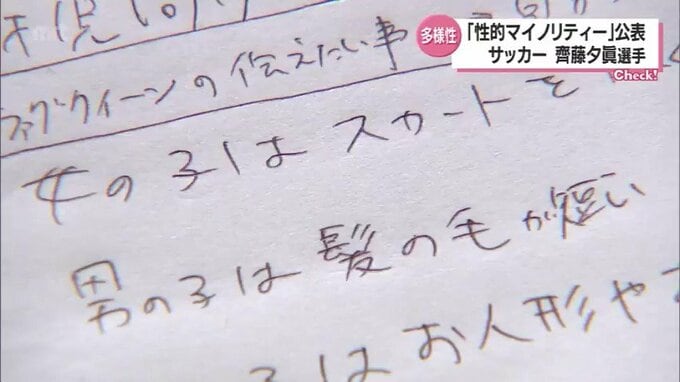 多様性
「性的マイノリティー」公表
サッカー 齊藤夕眞選手
Check!
ラグクィーンの伝えたい事
女の子はスカートを
男の子は髪の毛が短い
はお人形や